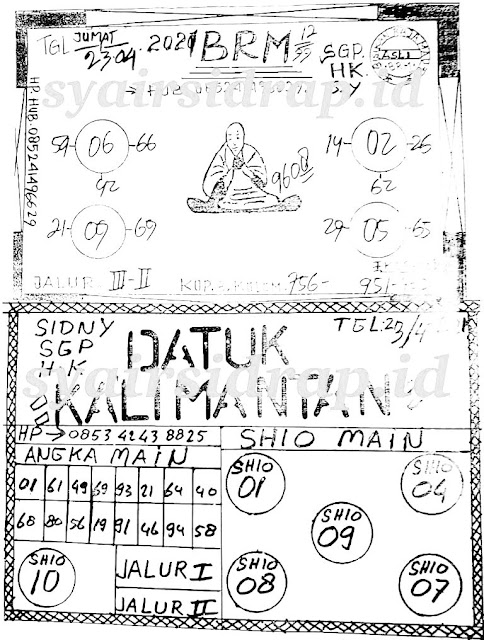 TGL JUMAT 23.04.2021
BRM 12/33
ASLI
SGP.
HK.
S.Y
HP. HUB. 085241496629
syairsidrap.id
59 06 66
42
21 09 69
9600
14 02 26
62
29 05 65
JALUR. III-II
756-
951-
SIDNY
SGP
HK
TGL:23/4
DATUK
KALIMANTAN
syairsidrap.id
HP→0853 4243 8825
ANGKA MAIN
01 61 49 69 93 21 64 40
68 80 56 19 91 46 94 58
SHIO 10
JALUR I
JALUR II
SHIO MAIN
SHIO 01
SHIO 04
SHIO 09
SHIO 08
SHIO 07